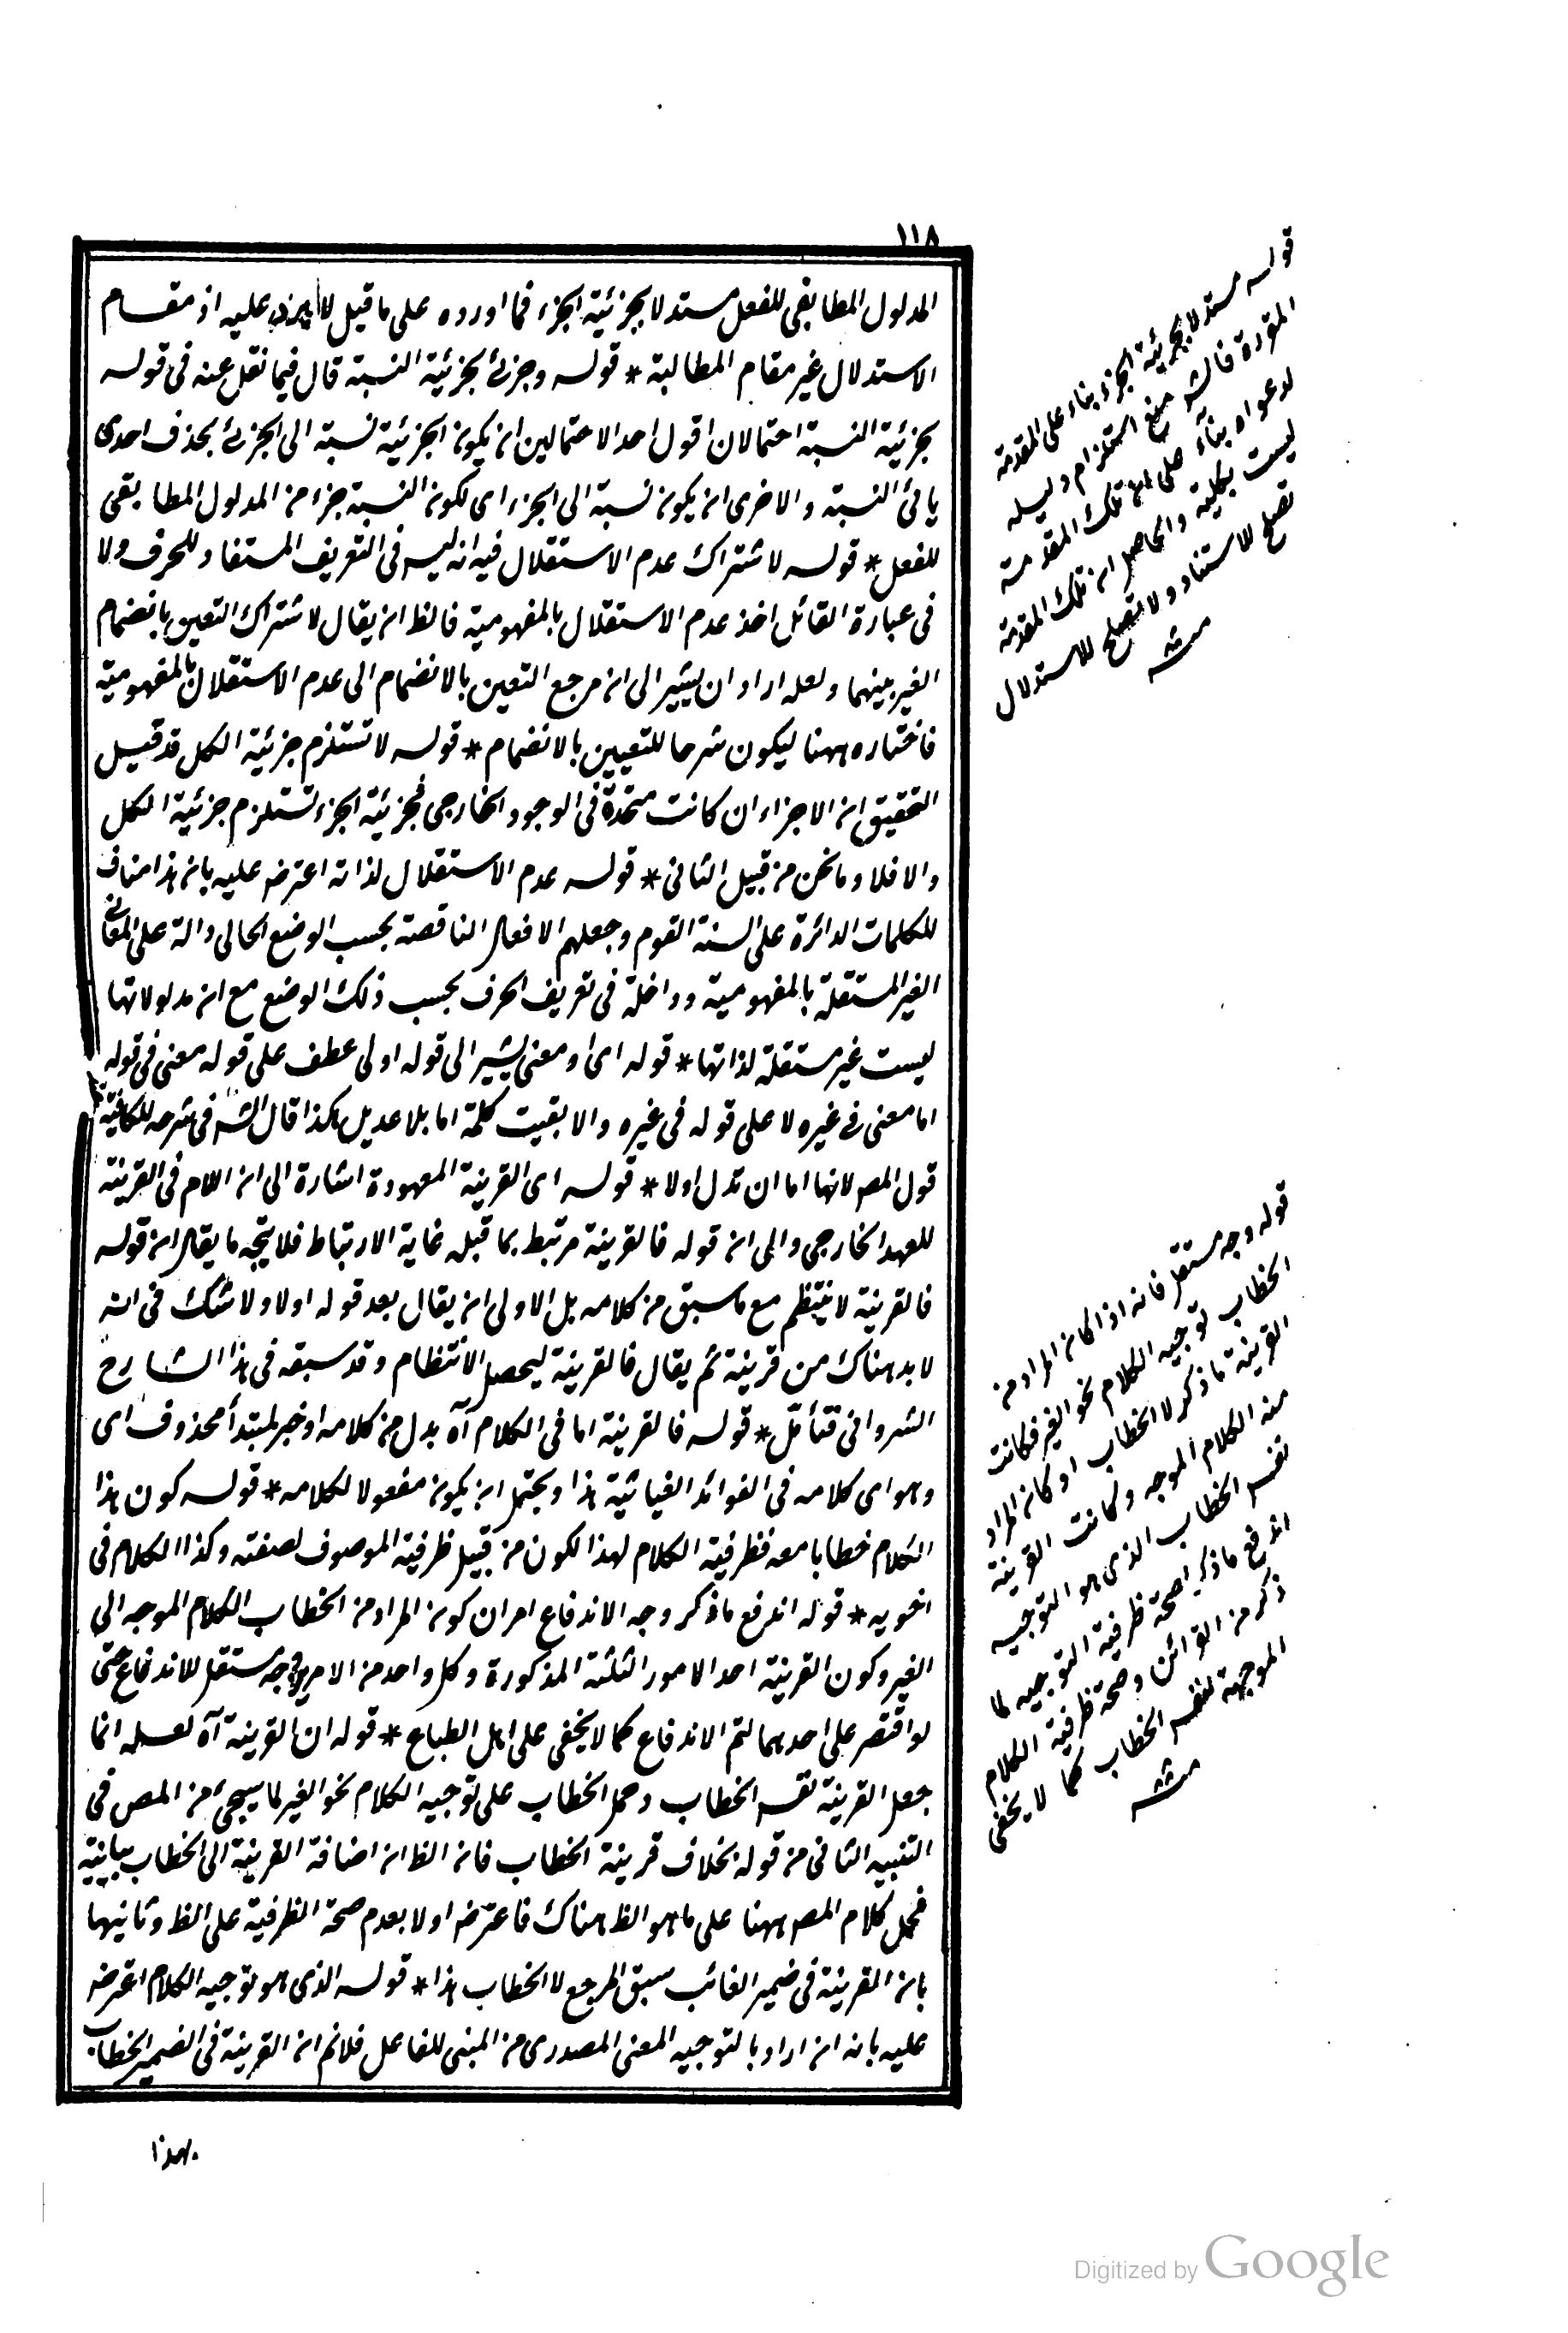 ١١٨
المدلول المطابقى للفعل مستدلا بجزئية الجزء فما اورده على ما قيل لا يرد عليه اذ مقام
الاستدلال غير مقام المطالبة * قوله وجزئ بجزئية النسبة قال فيما نقل عنه فى قوله
بجزئية النسبة احتمالان اقول احد الاحتمالين ان يكون الجزئية نسبة الى الجزئ بحذف احدى
يائى النسبة والاخرى ان يكون نسبة الى الجزء اى لكون النسبة جزء من المدلول المطابقى
للفعل * قوله لاشتراك عدم الاستقلال فيه انه ليس فى التعريف المستفاد للحرف ولا
فى عبارة القائل اخذ عدم الاستقلال بالمفهومية فالظ ان يقال لاشتراك التعين بانضمام
الغير بينهما ولعله اراد ان يشير الى ان مرجع التعين بالانضمام الى عدم الاستقلال بالمفهومية
فاختاره ههنا ليكون شرحا للتعيين بالانضمام * قوله لا تستلزم جزئية الكل قد قيل
التحقيق ان الاجزاء ان كانت متحدة فى الوجود الخارجى فجزئية الجزء تستلزم جزئية الكل
والا فلا وما نحن من قبيل الثانى * قوله عدم الاستقلال لذاته اعترض عليه بان هذا مناف
للكلمات الدائرة على السنة القوم وجعلهم الافعال الناقصة بحسب الوضع الحالى دالة على المعانى
الغير المستقلة بالمفهومية وداخلة فى تعريف الحرف بحسب ذلك الوضع مع ان مدلولاتها
ليست غير مستقلة لذاتها * قوله اى او معنى يشير الى قوله اولى عطف على قوله معنى فى قوله
اما معنى فى غيره لا على قوله فى غيره والا بقيت كلمة اما بلا عديل هكذا قال الش فى شرحه للكافية
قول المص لانها اما ان تدل اولا * قوله اى القرينة المعهودة اشارة الى ان اللام فى القرينة
للعهد الخارجى والى ان قوله فالقرينة مرتبط بما قبله غاية الارتباط فلا يتجه ما يقال ان قوله
فالقرينة لا ينتظم مع ما سبق من كلامه بل الاولى ان يقال بعد قوله اولا ولا شك فى انه
لا بد هناك من قرينة ثم يقال فالقرينة ليحصل الانتظام وقد سبقه فى هذا الشارح
الشروانى فتأمل * قوله فالقرينة اما فى الكلام آه بدل من كلامه او خبر لمبتدأ محذوف اى
وهو اى كلامه فى الفوائد الغياثية هذا ويحتمل ان يكون مفعولا لكلامه * قوله كون هذا
الكلام خطابا معه فظرفية الكلام لهذا الكون من قبيل ظرفية الموصوف لصفته وكذا الكلام فى
اخويه * قوله اندفع ما ذكر وجه الاندفاع امران كون المراد من الخطاب الكلام الموجه الى
الغير وكون القرينة احد الامور الثلثة المذكورة وكل واحد من الامرين وجه مستقل للاندفاع حتى
لو اقتصر على احدهما لتم الاندفاع كما لا يخفى على اهل الطباع * قوله ان القرينة آه لعله انما
جعل القرينة نفس الخطاب وحمل الخطاب على توجيه الكلام نحو الغير لما سيجئ من المص فى
التنبيه الثانى من قوله بخلاف قرينة الخطاب فان الظ ان اضافة القرينة الى الخطاب بيانية
فحمل كلام المص ههنا على ما هو الظ هناك فاعترض اولا بعدم صحة الظرفية على الظ وثانيها
بان القرينة فى ضمير الغائب سبق المرجع لا الخطاب هذا * قوله الذى هو توجيه الكلام اعترض
عليه بانه ان اراد بالتوجيه المعنى المصدرى من المبنى للفاعل فلانم ان القرينة فى الضمير الخطاب
بهذا
قوله مستدلا بجزئية الجزء بناء على المقدمة
المقررة فالش منع استلزام دليله
لدعواه بناء على ان تلك المقدمة
ليست بكلية والحاصل ان تلك المقدمة
تصلح للاستناد ولا تصلح للاستدلال
منه
قوله وجه مستقل فانه اذا كان المراد من
الخطاب توجيه الكلام نحو الغير فكانت
القرينة ما ذكر لا الخطاب او كان المراد
منه الكلام الموجه وكانت القرينة
نفس الخطاب الذى هو التوجيه
اندفع ما ذكر لصحة ظرفية التوجيه لما
ذكر من القرائن وصحة ظرفية الكلام
الموجهة لنفس الخطاب كما لا يخفى
منه
Digitized by Google